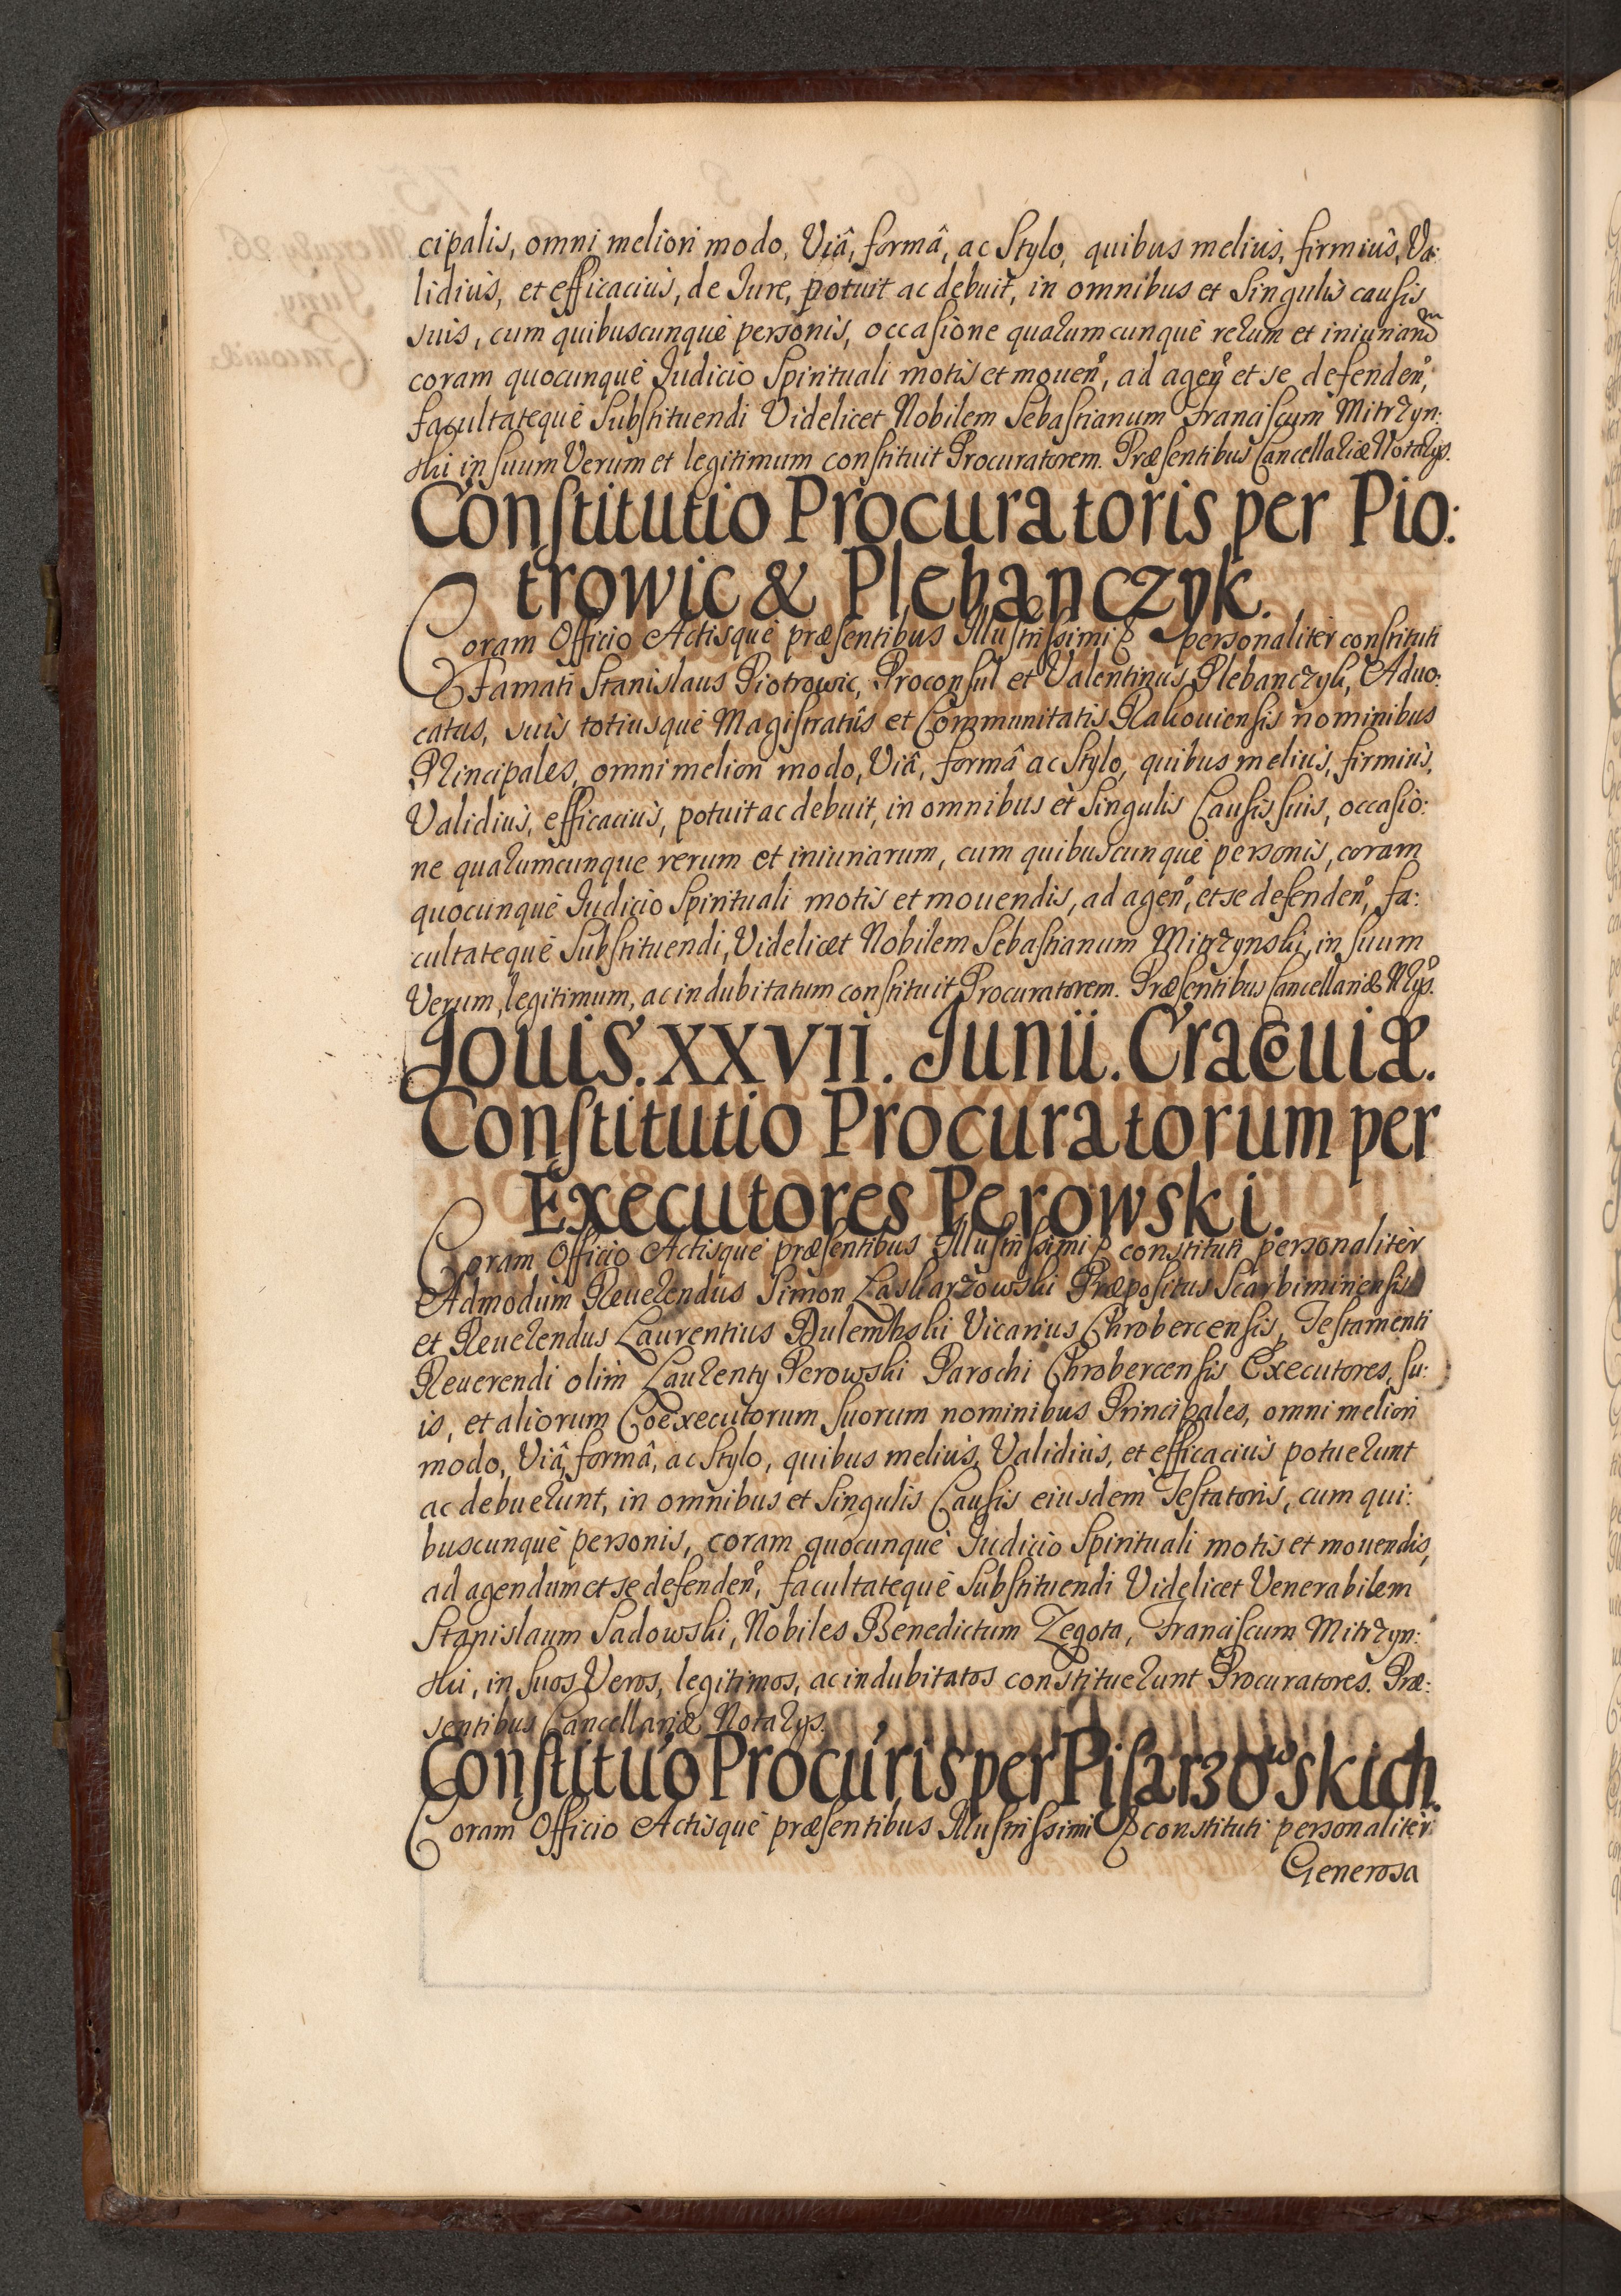 cipalis, omni meliori modo, Viâ, formâ, ac Stylo, quibus melius, firmiùs, Va:
lidiùs, et efficaciùs, de Jure, potuit ac debuit, in omnibus et Singulis causis
suis, cum quibuscunquè personis, occasione quarumcunquè rerum et iniuriarũ
coram quocunquè Judicio Spirituali motis et mouen̊, ad agen̊ et se defenden̊,
facultatequè Substituendi Videlicet Nobilem Sebastianum Franciscum Mitrzyn:
ski in suum Verum et legitimum constituit Procuratorem. Præsentibus Cancellariæ Notarÿs.
Constitutio Procuratoris per Pio:
trowic & Plebanczyk.
Coram Officio Actisquè præsentibus Illustrissimi personalitèr constituti
Famati Stanislaus Piotrowic, Proconsul et Valentinus Plebanczyk, Aduo:
catus, suis totiusquè Magistratûs et Communitatis Rakouiensis nominibus
Principales, omni meliori modo, Viâ, formâ ac Stylo, quibus meliùs, firmiùs,
Validiùs, efficaciùs, potuit ac debuit, in omnibus et Singulis Causis suis, occasio:
ne quarumcunque rerum et iniuriarum, cum quibuscunquè personis, coram
quocunquè Judicio Spirituali motis et mouendis, ad agen̊, et se defenden̊, fa:
cultatequè Substituendi, Videlicet Nobilem Sebastianum Mitrzynski, in suum
Verum, legitimum, ac indubitatum constituit Procuratorem. Præsentibus Cancellariæ Nr̊ÿs.
Jouis. XXVII. Junii. Cracouiæ.
Constitutio Procuratorum per
Executores Perowski.
Coram Officio Actisquè præsentibus Illustrissimi constituti personalitèr
Admodum Reuerendus Simon Laskarzowski Præpositus Scarbiminiensis
et Reuerendus Laurentius Vicarius Chrobercensis, Testamenti
Reuerendi olim Laurenty Perowski Parochi Chrobercensis Executores, su:
is, et aliorum Coexecutorum suorum nominibus Principales, omni meliori
modo, Viâ, formâ, ac Stylo, quibus meliùs, Validiùs, et efficaciùs potuerunt
ac debuerunt, in omnibus et Singulis Causis eiusdem Testatoris, cum qui:
buscunquè personis, coram quocunquè Judicio Spirituali motis et mouendis,
ad agendum et se defenden̊, facultatequè Substituendi Videlicet Venerabilem
Stanislaum Sadowski, Nobiles Benedictum Zegota, Franciscum Mitrzyn:
ski, in suos Veros, legitimos, ac indubitatos constituerunt Procuratores. Præ:
sentibus Cancellariæ Notarÿs.
Constituo Procuris per Pisarzowskich.
Coram Officio Actisquè præsentibus Illustrissimi constituti personalitèr
Generosa